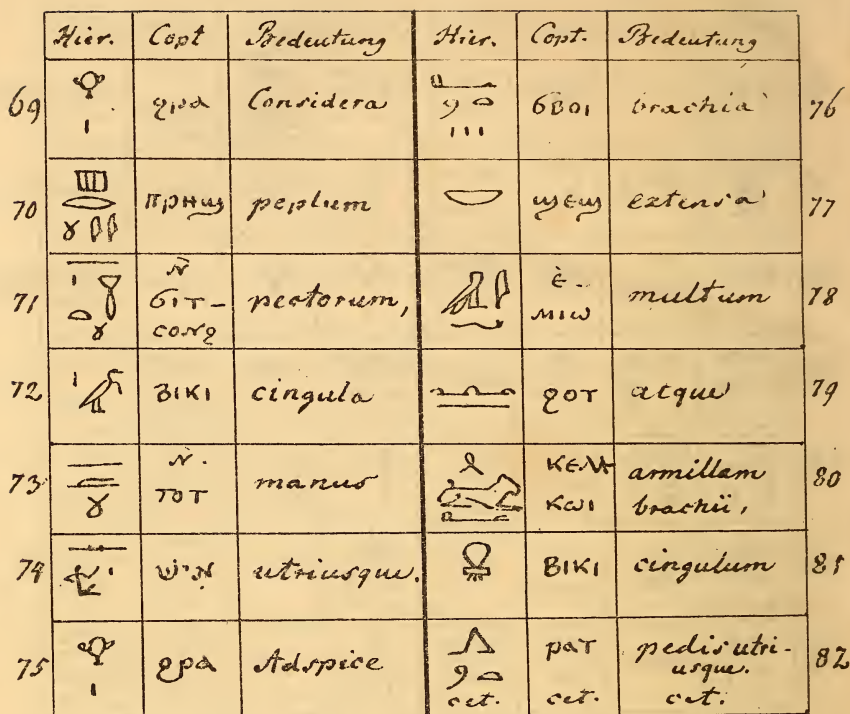 Hier. Copt Bedeutung Hier. Copt. Bedeutung
69 ϩⲣⲁ Considera ϭⲃⲟⲓ brachia 76
70 ⲡⲣⲏϣ peplum ϣⲉϣ extensa 77
71 ⲛ̀
ϭⲓⲧ-
ⲥⲟⲛϩ pectorum, ⲉ̀-
ⲙⲓⲱ multum 78
72 ⲃⲓⲕⲓ cingula ϩⲟⲧ atque 79
73 ⲛ̀.
ⲧⲟⲧ manus
ⲕⲱⲓ armillam
brachii, 80
74 אִישׁ utriusque. ⲃⲓⲕⲓ cingulum 81
75 ϩⲣⲁ Adspice ⲣⲁⲧ pedis utri-
usque.
cet. cet. cet. 82